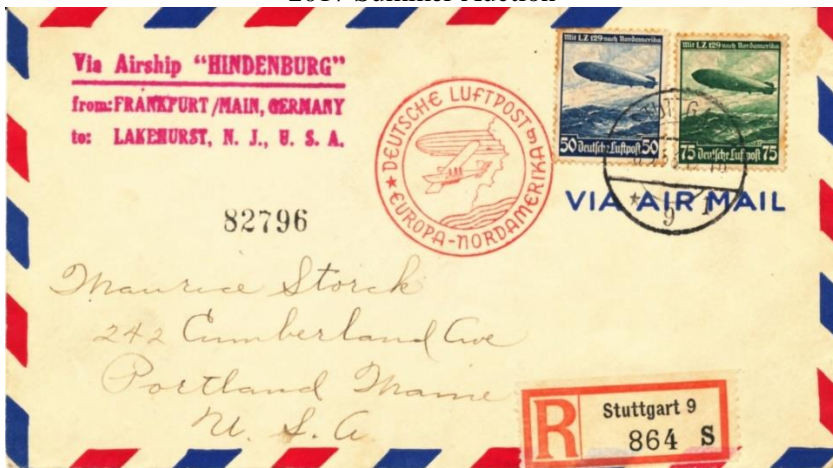 2017 Summer Auction
Via Airship "HINDENBURG"
from: FRANKFURT/MAIN, GERMANY
to: LAKEHURST, N. J., U. S. A.
DEUTSCHE LUFTPOST
★ EUROPA-NORDAMERIKA
Mit LZ 129 nach Nordamerika
50 Deutsche Luftpost 50
Mit LZ 129 nach Nordamerika
75 Deutsche Luftpost 75
VIA AIR MAIL
82796
Maurice Storck
242 Cumberland Ave
Portland Maine
U. S. A
R
Stuttgart 9
864 S